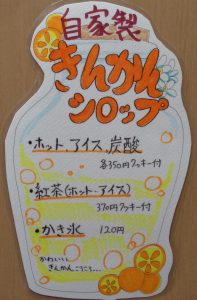 自家製
きんかん
シロップ
・ホット.アイス 炭酸
各350円クッキー付
・紅茶(ホット・アイス)
370円クッキー付
・かき氷 120円
かわいい
きんかんごろごろ...